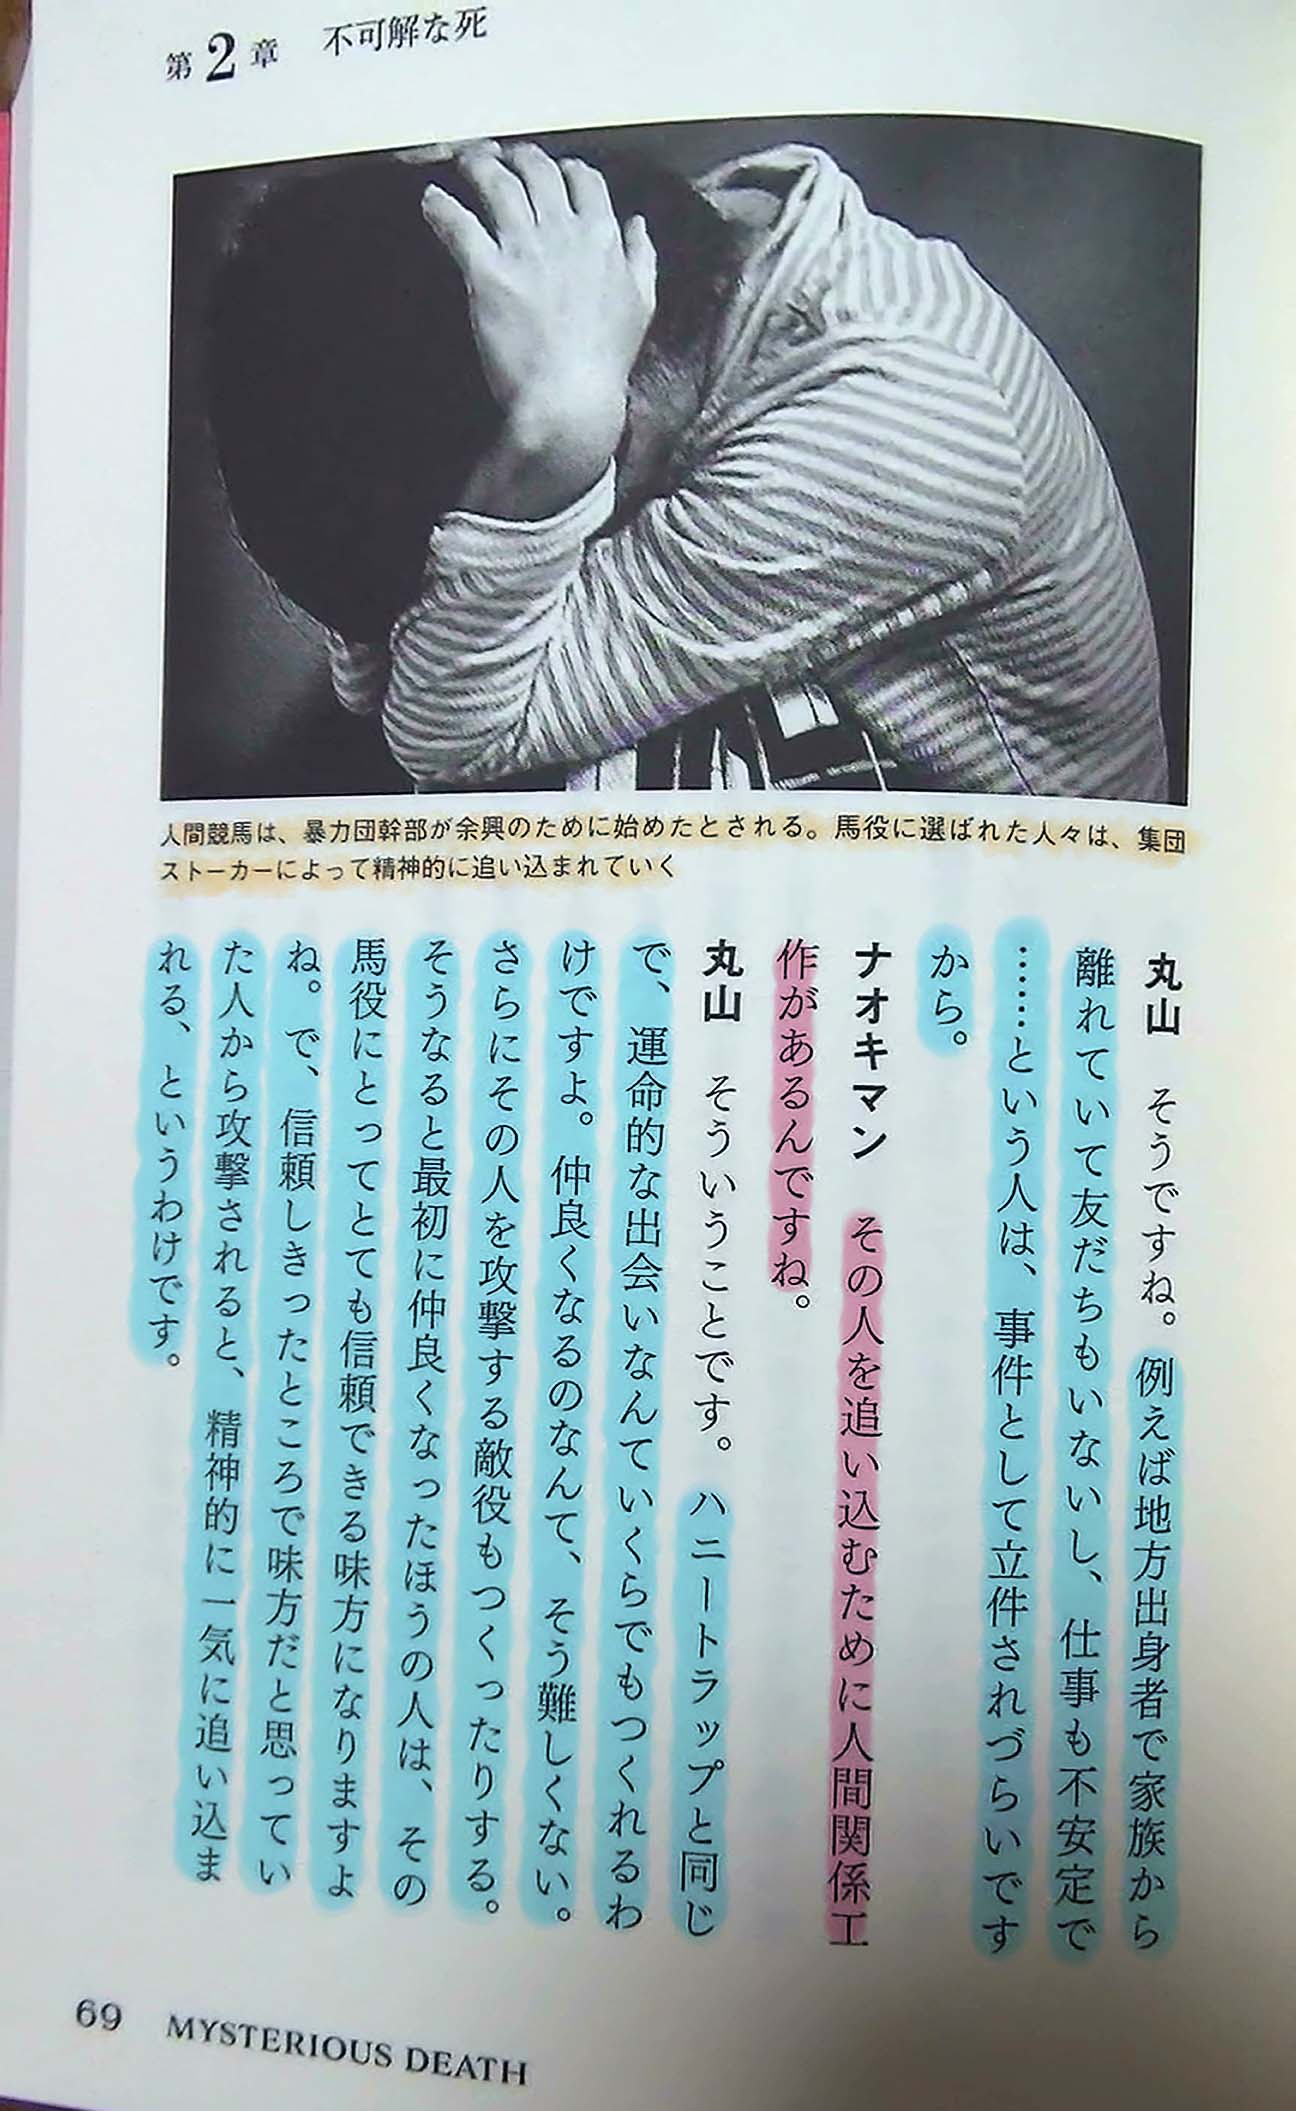 第2章 不可解な死
人間競馬は、暴力団幹部が余興のために始めたとされる。馬役に選ばれた人々は、集団
ストーカーによって精神的に追い込まれていく
丸山 そうですね。例えば地方出身者で家族から
離れていて友だちもいないし、仕事も不安定で
……という人は、事件として立件されづらいです
から。
ナオキマン その人を追い込むために人間関係工
作があるんですね。
丸山 そういうことです。ハニートラップと同じ
で、運命的な出会いなんていくらでもつくれるわ
けですよ。仲良くなるのなんて、そう難しくない。
さらにその人を攻撃する敵役もつくったりする。
そうなると最初に仲良くなったほうの人は、その
馬役にとってとても信頼できる味方になりますよ
ね。で、信頼しきったところで味方だと思ってい
た人から攻撃されると、精神的に一気に追い込ま
れる、というわけです。
69 MYSTERIOUS DEATH